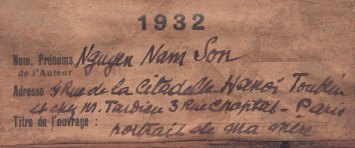 1932
Nom, Prénoms Nguyen Nam Son
de l'Auteur
Adresse 4 Rue de la Citadelle Hanoï Tonkin
et chez M. Tardieu 3 Rue Chaptal - Paris
Titre de l'ouvrage :
portrait de ma mère